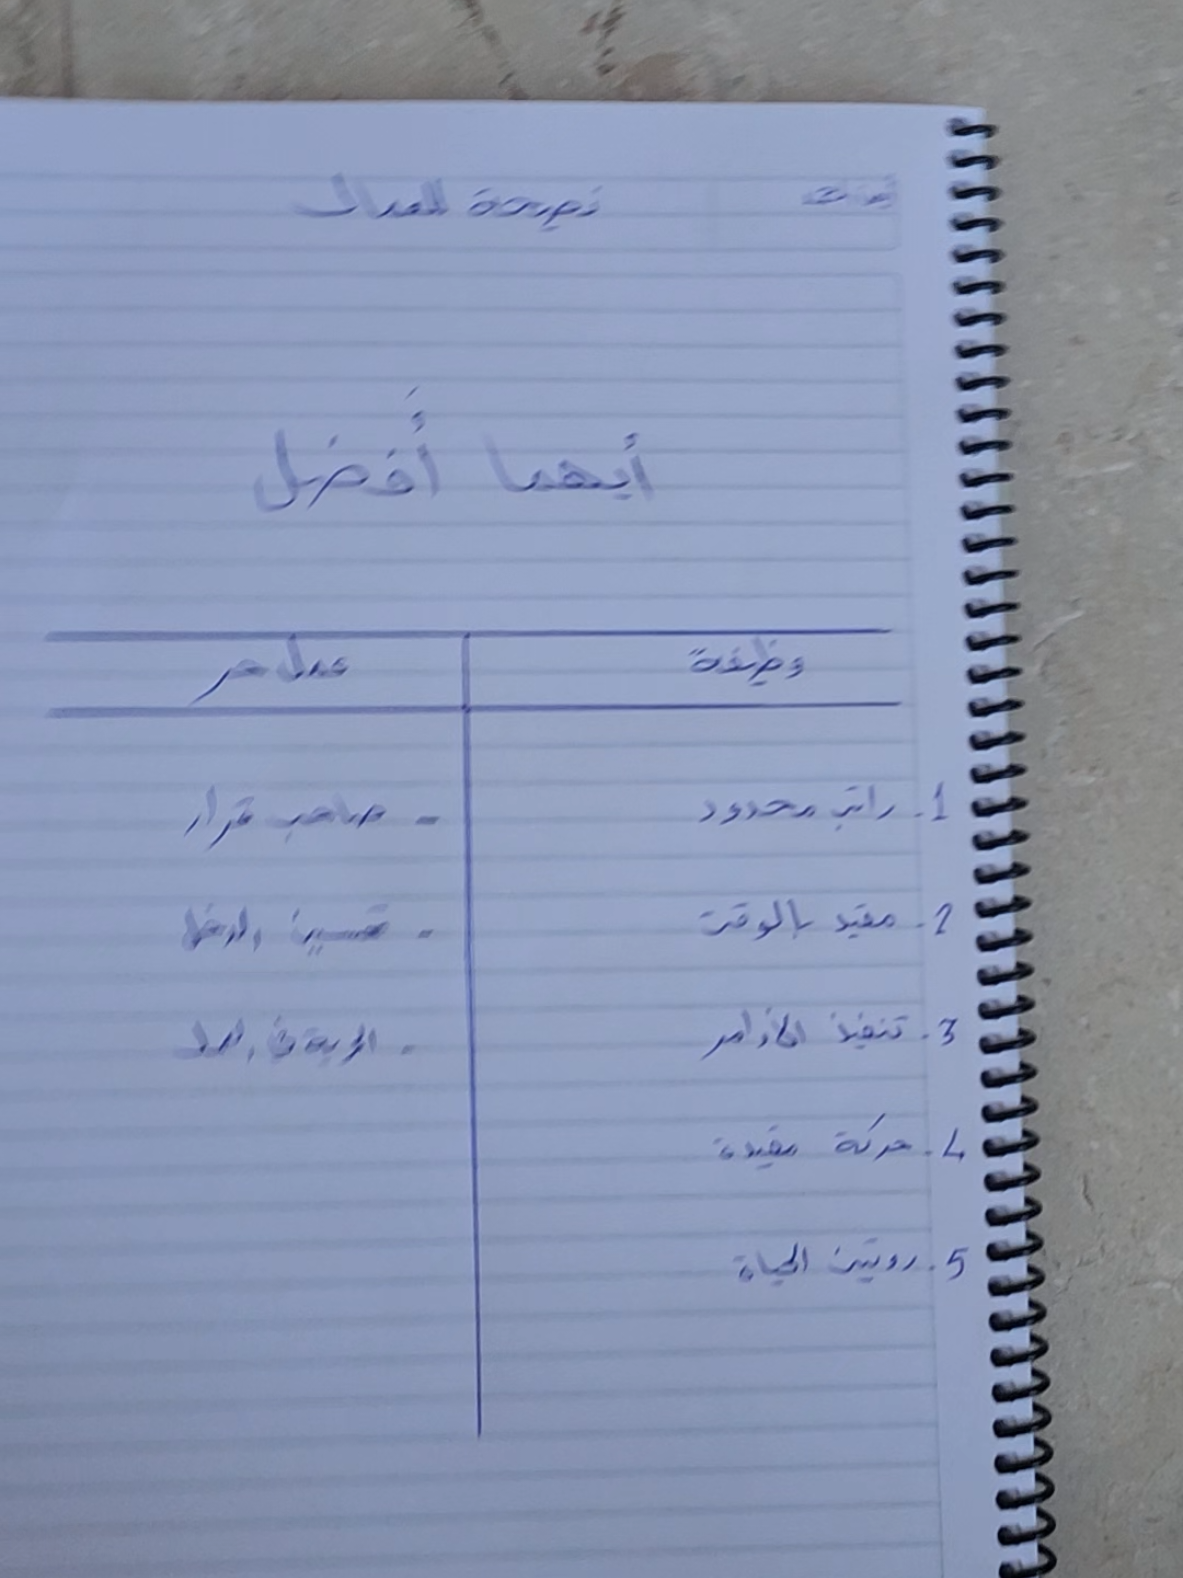 نصيحة للعمال
أيهما أفضل
وظيفة عمل حر
1. راتب محدود - صاحب قرار
2. مقيد بالوقت - تحسين الدخل
3. تنفيذ الأوامر - الحرية في العمل
4. حركة مقيدة
5. روتين الحياة